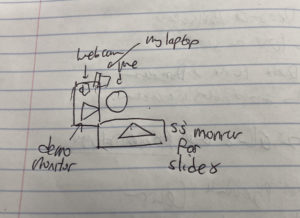 my laptop
webcam
me
demo
monitor
53 monitor
for
slides